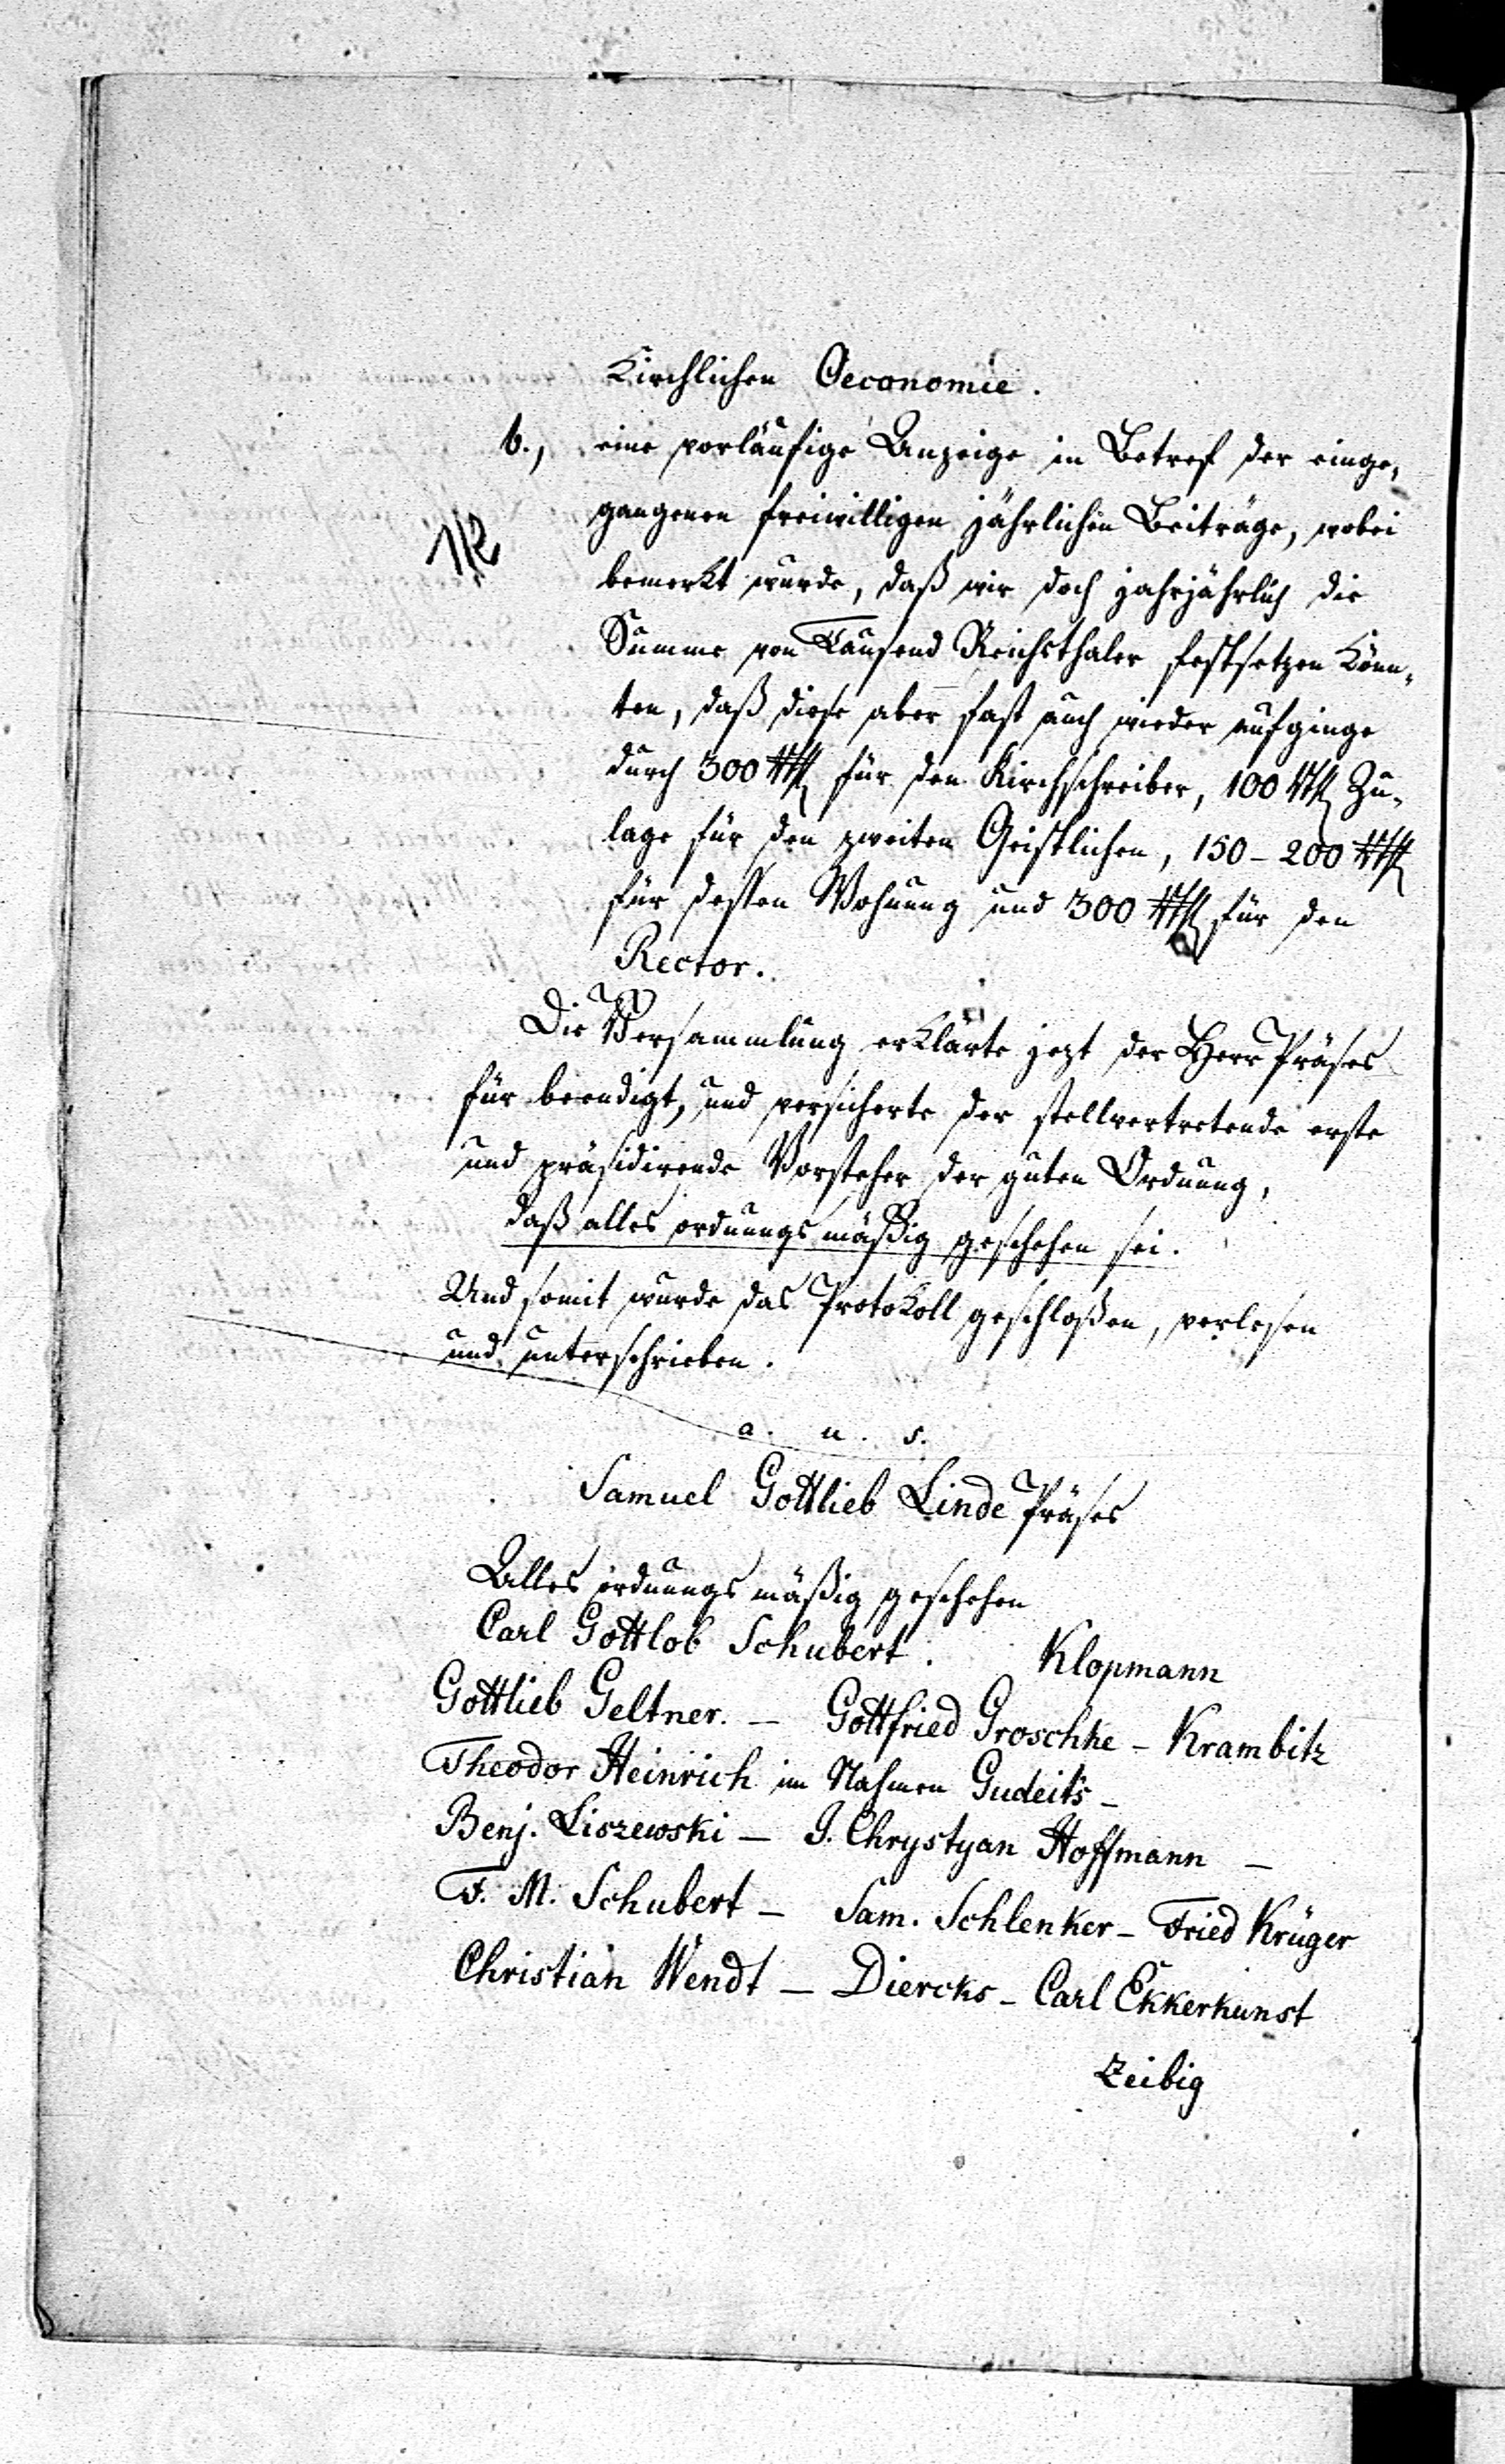 Kirchlichen Oeconomie.
b., eine vorläufige Anzeige in Betref der einge-
gangenen freiwilligen jährlichen Beiträge, wobei
bemerkt wurde, daß wir doch jahrjährlich die
Summe von Tausend Reichsthaler festsetzen könn-
ten, daß diese aber fast auch wieder aufginge
durch 300 Rth für den Kirchschreiber, 100 Rth Zu-
lage für den zweiten Geistlichen, 150 – 200 Rth
für dessen Wohnung und 300 Rth für den
Rector.
Die Versammlung erklärte jezt der Herr Präses
für beendigt, und versicherte der stellvertretende erste
und präsidirende Vorsteher der guten Ordnung,
daß alles ordnungsmäßig geschehen sei.
Und somit wurde das Protokoll geschloßen, verlesen
und unterschrieben.
a. u. s.
Samuel Gottlieb Linde Präses
Alles ordnungsmäßig geschehen
Carl Gottlob Schubert. Klopmann
Gottlieb Geltner. – Gottfried Groschke – Krambitz
Theodor Heinrich im Nahmen Gudeits –
Benj. Liszewski – J. Chrystyan Hoffmann –
F. M. Schubert – Sam. Schlenker – Fried Krüger
Christian Wendt – Diercks – Carl Ekkerkunst
Zeibig